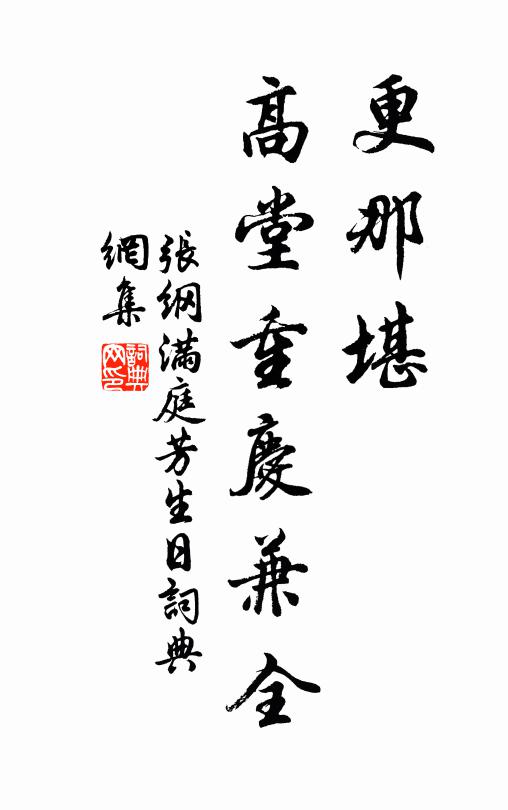 更那堪
高堂重慶兼全
張綱滿庭芳生日詞典
網集
詞典
网印